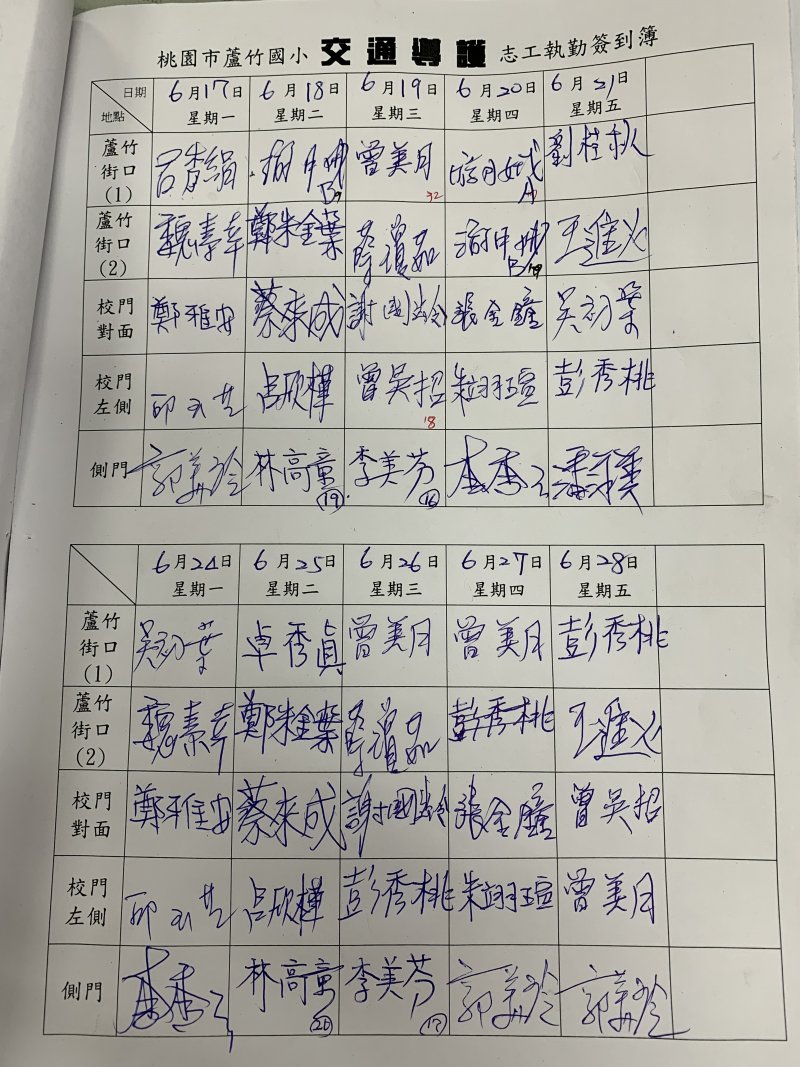 桃園市蘆竹國小 交通導護 志工執勤簽到簿
日期 6月17日 6月18日 6月19日 6月20日 6月21日
地點 星期一 星期二 星期三 星期四 星期五
蘆竹
街口 呂香絹 曾美月 劉桂秋
(1) 32
蘆竹
街口 魏素幸 鄭朱金葉 王進火
(2)
校門
對面 鄭雅安 蔡來成 謝國龄 張金鐘 吳初葉
校門
左側 邱 呂欣樺 曾吳招 朱翊瑄 彭秀桃
18
側門 郭美玲 林高童 李美芬
19 16
6月24日 6月25日 6月26日 6月27日 6月28日
星期一 星期二 星期三 星期四 星期五
蘆竹
街口 吳初葉 卓秀貞 曾美月 曾美月 彭秀桃
(1)
蘆竹
街口 魏素幸 鄭朱金葉 彭秀桃 王進火
(2)
校門
對面 鄭雅安 蔡來成 謝國龄 張金鐘 曾吳招
校門
左側 邱 呂欣樺 彭秀桃 朱翊瑄 曾美月
側門 林高童 李美芬 郭美玲 郭美玲
20 17